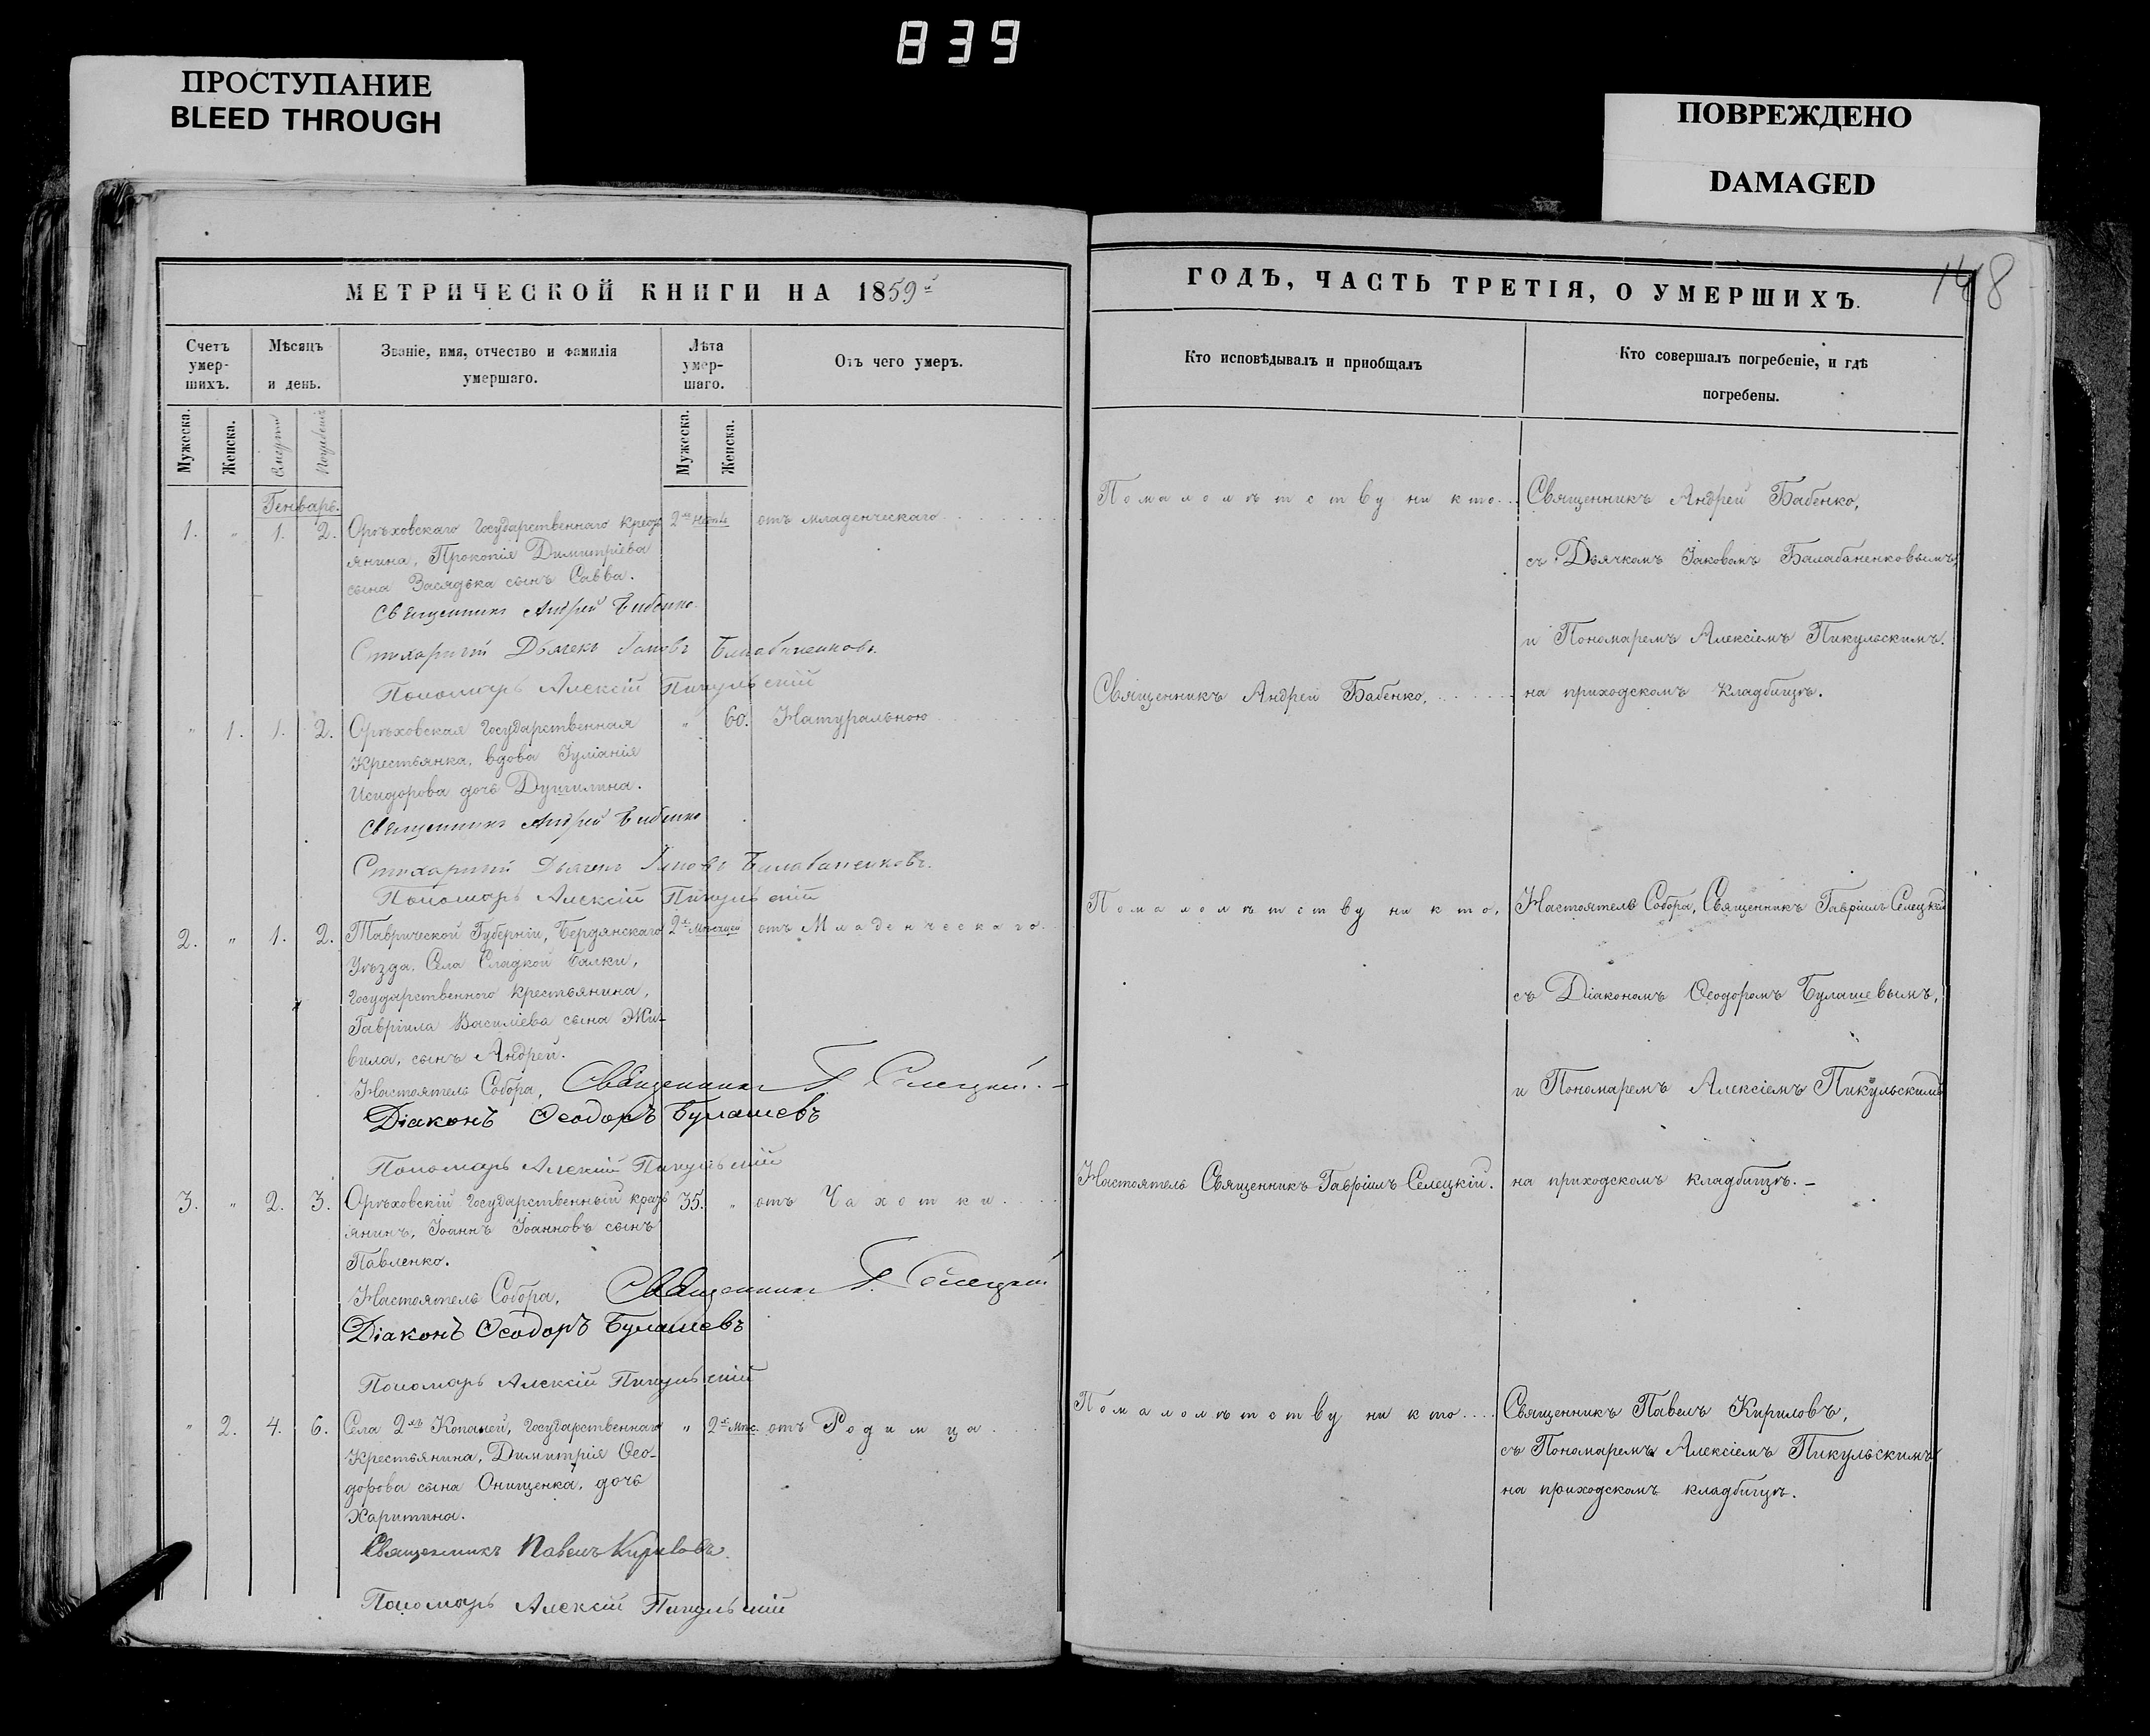 839
ПРОСТУПАНИЕ
BLEED THROUGH
ПОВРЕЖДЕНО
DAMAGED
МЕТРИЧЕСКОЙ КНИГИ НА 1859й
Счетъ умер-шихъ.
Мѣсяцъ и день.
Званіе, имя, отчество и фамилія умершаго.
Лѣта умер-шаго.
Отъ чего умеръ.
Мужеска.
Женска.
Смерти
Погребенія
Мужеска.
Женска.
Генварь.
1. " 1. 2. Орѣховскаго Государственнаго крест 2хъ отъ младенческаго
янина, Прокопія Димитріева
сына Засядька сынъ Савва.
Священникъ Андрей Бабенко
Стихарный Дьячекъ Іаковъ Балабаненковъ
Пономарь Алексій Пикульскій
" 1. 1. 2. Орѣховская Государственная " 60. Натуральною
Крестьянка, вдова Іуліанія
Исидорова дочь Душилина.
Священникъ Андрей Бабенко
Стихарный Дьячекъ Іаковъ Балабаненковъ.
Пономарь Алексій Пикульскій
2. " 1. 2. Таврической Губерніи, Бердянскаго 2хъ Мѣсяцей отъ Младенческаго
Уѣзда, Села Сладкой Балки,
Государственного крестьянина,
Гавріила Василіева сына Жи-
вила, сынъ Андрей.
Настоятель Собора, Священникъ Г. Селецкій.
Діаконъ Ѳеодоръ Булашевъ
Пономарь Алексій Пикульскій
3. " 2. 3. Орѣховскій Государственный крест 35. " отъ Чахотки.
янинъ, Іоаннъ Іоанновъ сынъ
Павленко.
Настоятель Собора, Священникъ Г. Селецкій
Діаконъ Ѳеодоръ Булашевъ
Пономарь Алексій Пикульскій
" 2. 4. 6. Села 2хъ Копаней, Государственнаго " 2хъ Мѣс. отъ Родимца.
Крестьянина, Димитрія Ѳео-
дорова сына Онищенка, дочь
Харитина.
Священникъ Павелъ Кириловъ.
Пономарь Алексій Пикульскій
ГОДЪ, ЧАСТЬ ТРЕТІЯ, О УМЕРШИХЪ.
148
Кто исповѣдывалъ и приобщалъ
Кто совершалъ погребеніе, и гдѣ погребены.
По малолѣтству никто... Священникъ Андрей Бабенко,
съ Дьячкомъ Іаковомъ Балабаненковымъ,
и Пономаремъ Алексіемъ Пикульскимъ.
Священникъ Андрей Бабенко, на приходскомъ кладбищѣ.
По малолѣтству никто, Настоятель Собора, Священникъ Гавріилъ Селецкій
съ Діакономъ Ѳеодоромъ Булашевымъ,
и Пономаремъ Алексіемъ Пикульскимъ
Настоятель Священникъ Гавріилъ Селецкій. на приходскомъ кладбищѣ. –
По малолѣтству никто.... Священникъ Павелъ Кириловъ,
съ Пономаремъ Алексіемъ Пикульскимъ
на приходскомъ кладбищѣ.